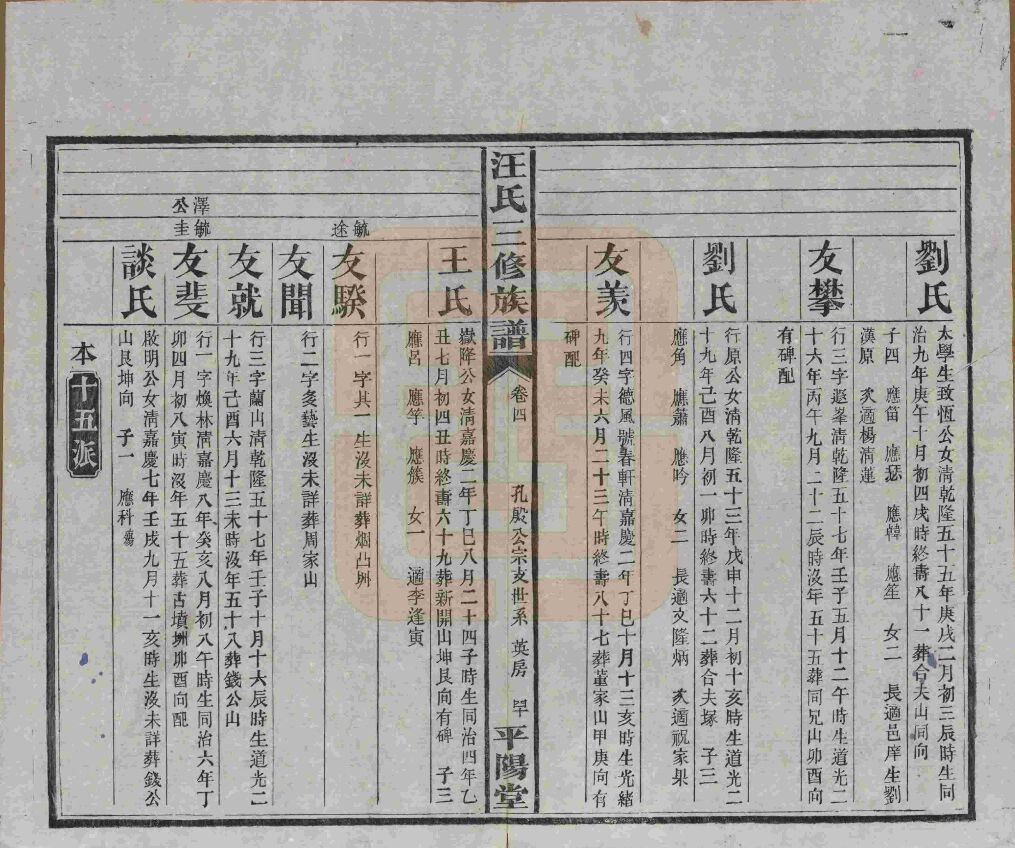 劉氏
太學生致恆公女清乾隆五十五年庚戌二月初三辰時生同
治九年庚午十月初四戌時終壽八十一葬合夫山同向
子四　應笛　應瑟　應韓　應笙　女二　長適邑庠生劉
漢原　次適楊清蓮
友攀
行三字遐峯清乾隆五十七年壬子五月十二午時生道光二
十六年丙午九月二十二辰時沒年五十五葬同兄山卯酉向
有碑配
劉氏
行原公女清乾隆五十三年戊申十二月初十亥時生道光二
十九年己酉八月初一卯時終壽六十二葬合夫塚　子三
應角　應蕭　應吟　女二　長適文隆炳　次適祝家果
友羨
行四字德風號春軒清嘉慶二年丁巳十月十三亥時生光緒
九年癸未六月二十三午時終壽八十七葬董家山甲庚向有
碑配
汪氏三修族譜
卷四　孔殷公宗支世系　英房　平陽堂
王氏
嶽降公女清嘉慶二年丁巳八月二十四子時生同治四年乙
丑七月初四丑時終壽六十九葬新開山坤艮向有碑　子三
應呂　應竽　應簇　女一　適李逢寅
毓途
友騤
行一字其一生沒未詳葬烟凸圸
友聞
行二字多藝生沒未詳葬周家山
友就
行三字蘭山清乾隆五十七年壬子十月十六辰時生道光二
十九年己酉六月十三未時沒年五十八葬錢公山
澤公
毓圭
友斐
行一字煥林清嘉慶八年癸亥八月初八午時生同治六年丁
卯四月初八寅時沒年五十五葬古墳圸卯酉向配
談氏
啟明公女清嘉慶七年壬戌九月十一亥時生沒未詳葬錢公
山艮坤向　子一　應科殤
本十五派